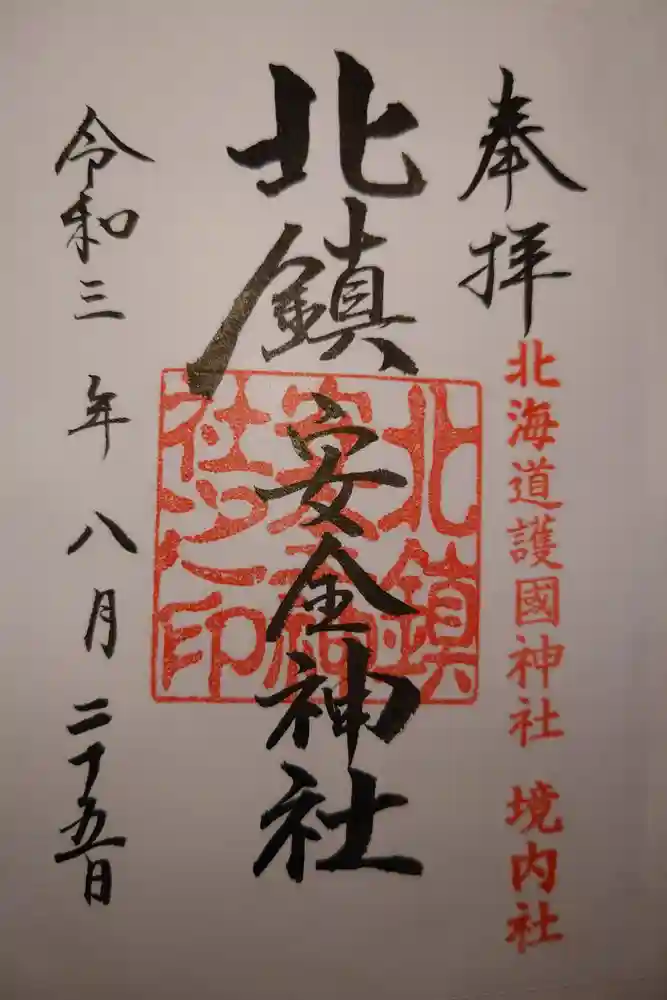 奉拝
北海道護國神社 境内社
北鎮安全神社
北鎮
社之印
令和三年八月二十五日